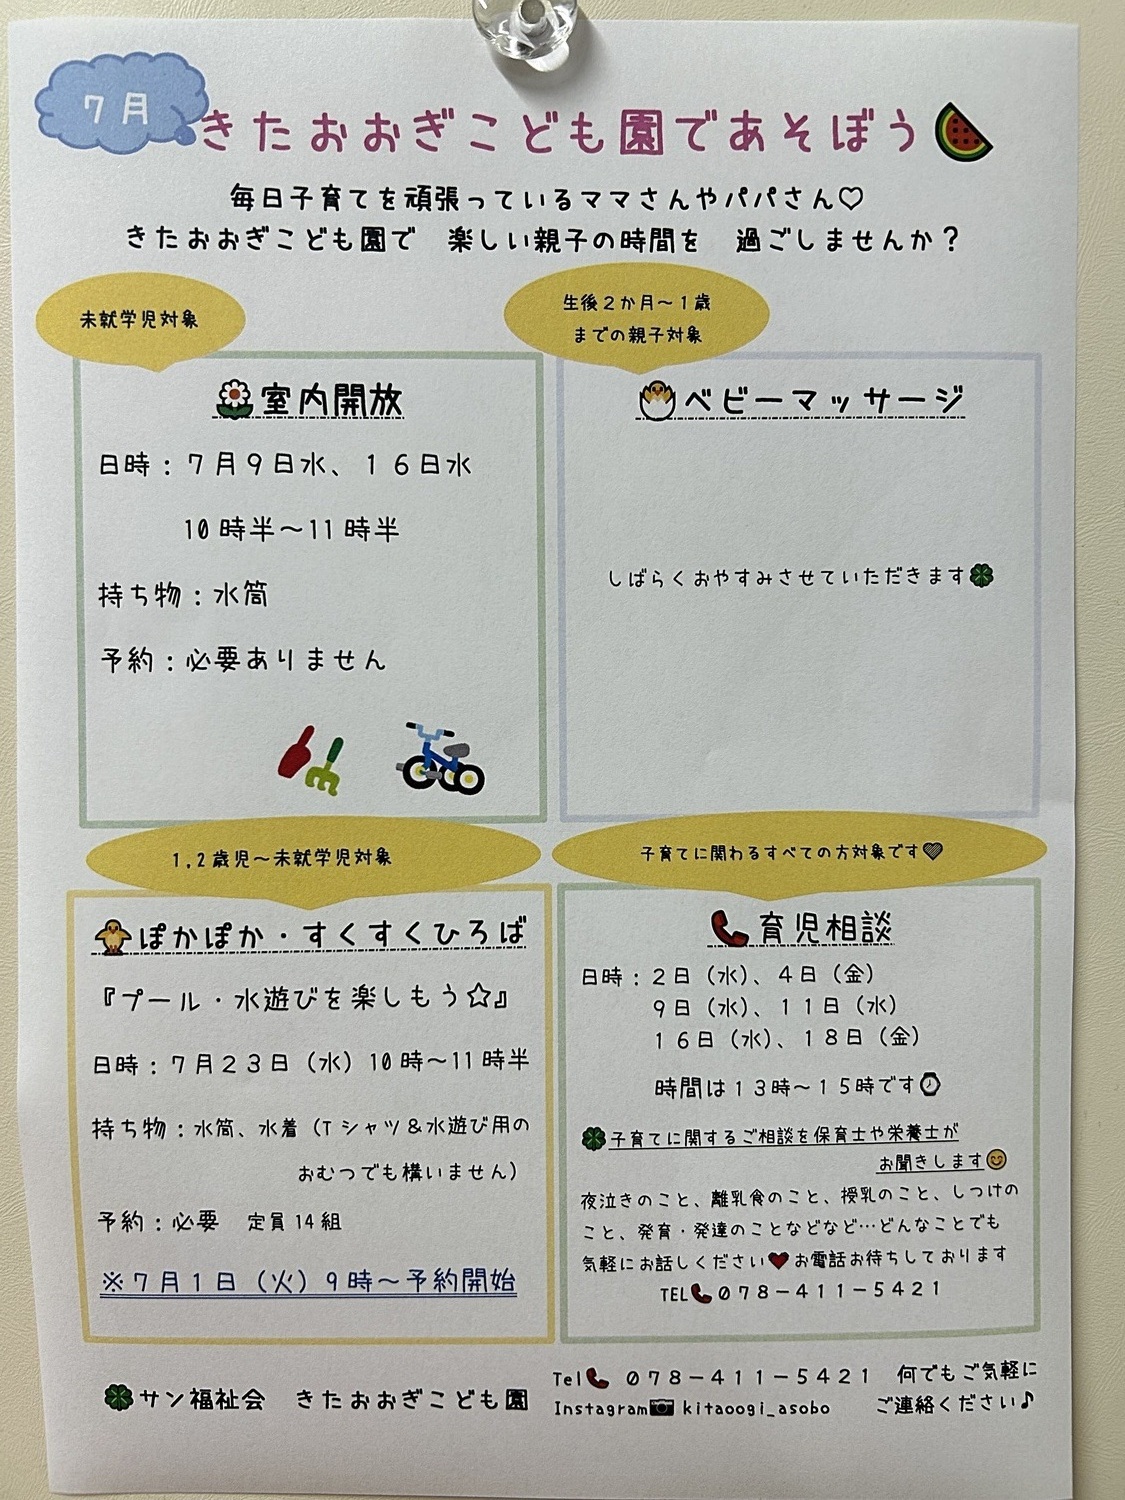 7月
きたおおぎこども園であそぼう
毎日子育てを頑張っているママさんやパパさん♡
きたおおぎこども園で　楽しい親子の時間を　過ごしませんか？
未就学児対象
室内開放
日時：７月９日水、１６日水
10時半～11時半
持ち物：水筒
予約：必要ありません
生後２か月～１歳
までの親子対象
ベビーマッサージ
しばらくおやすみさせていただきます🍀
1,2歳児～未就学児対象
ぽかぽか・すくすくひろば
『プール・水遊びを楽しもう☆』
日時：７月２３日（水）10時～11時半
持ち物：水筒、水着（Tシャツ＆水遊び用の
おむつでも構いません）
予約：必要　定員14組
※７月１日（火）９時～予約開始
子育てに関わるすべての方対象です♡
育児相談
日時：２日（水）、４日（金）
９日（水）、１１日（水）
１６日（水）、１８日（金）
時間は１３時～１５時です
🍀子育てに関するご相談を保育士や栄養士が
お聞きします😊
夜泣きのこと、離乳食のこと、授乳のこと、しつけの
こと、発育・発達のことなどなど…どんなことでも
気軽にお話しください♥お電話お待ちしております
TEL📞０７８－４１１－５４２１
🍀サン福祉会　きたおおぎこども園
Tel📞　０７８－４１１－５４２１　何でもご気軽に
Instagram📷 kitaoogi_asobo　ご連絡ください♪